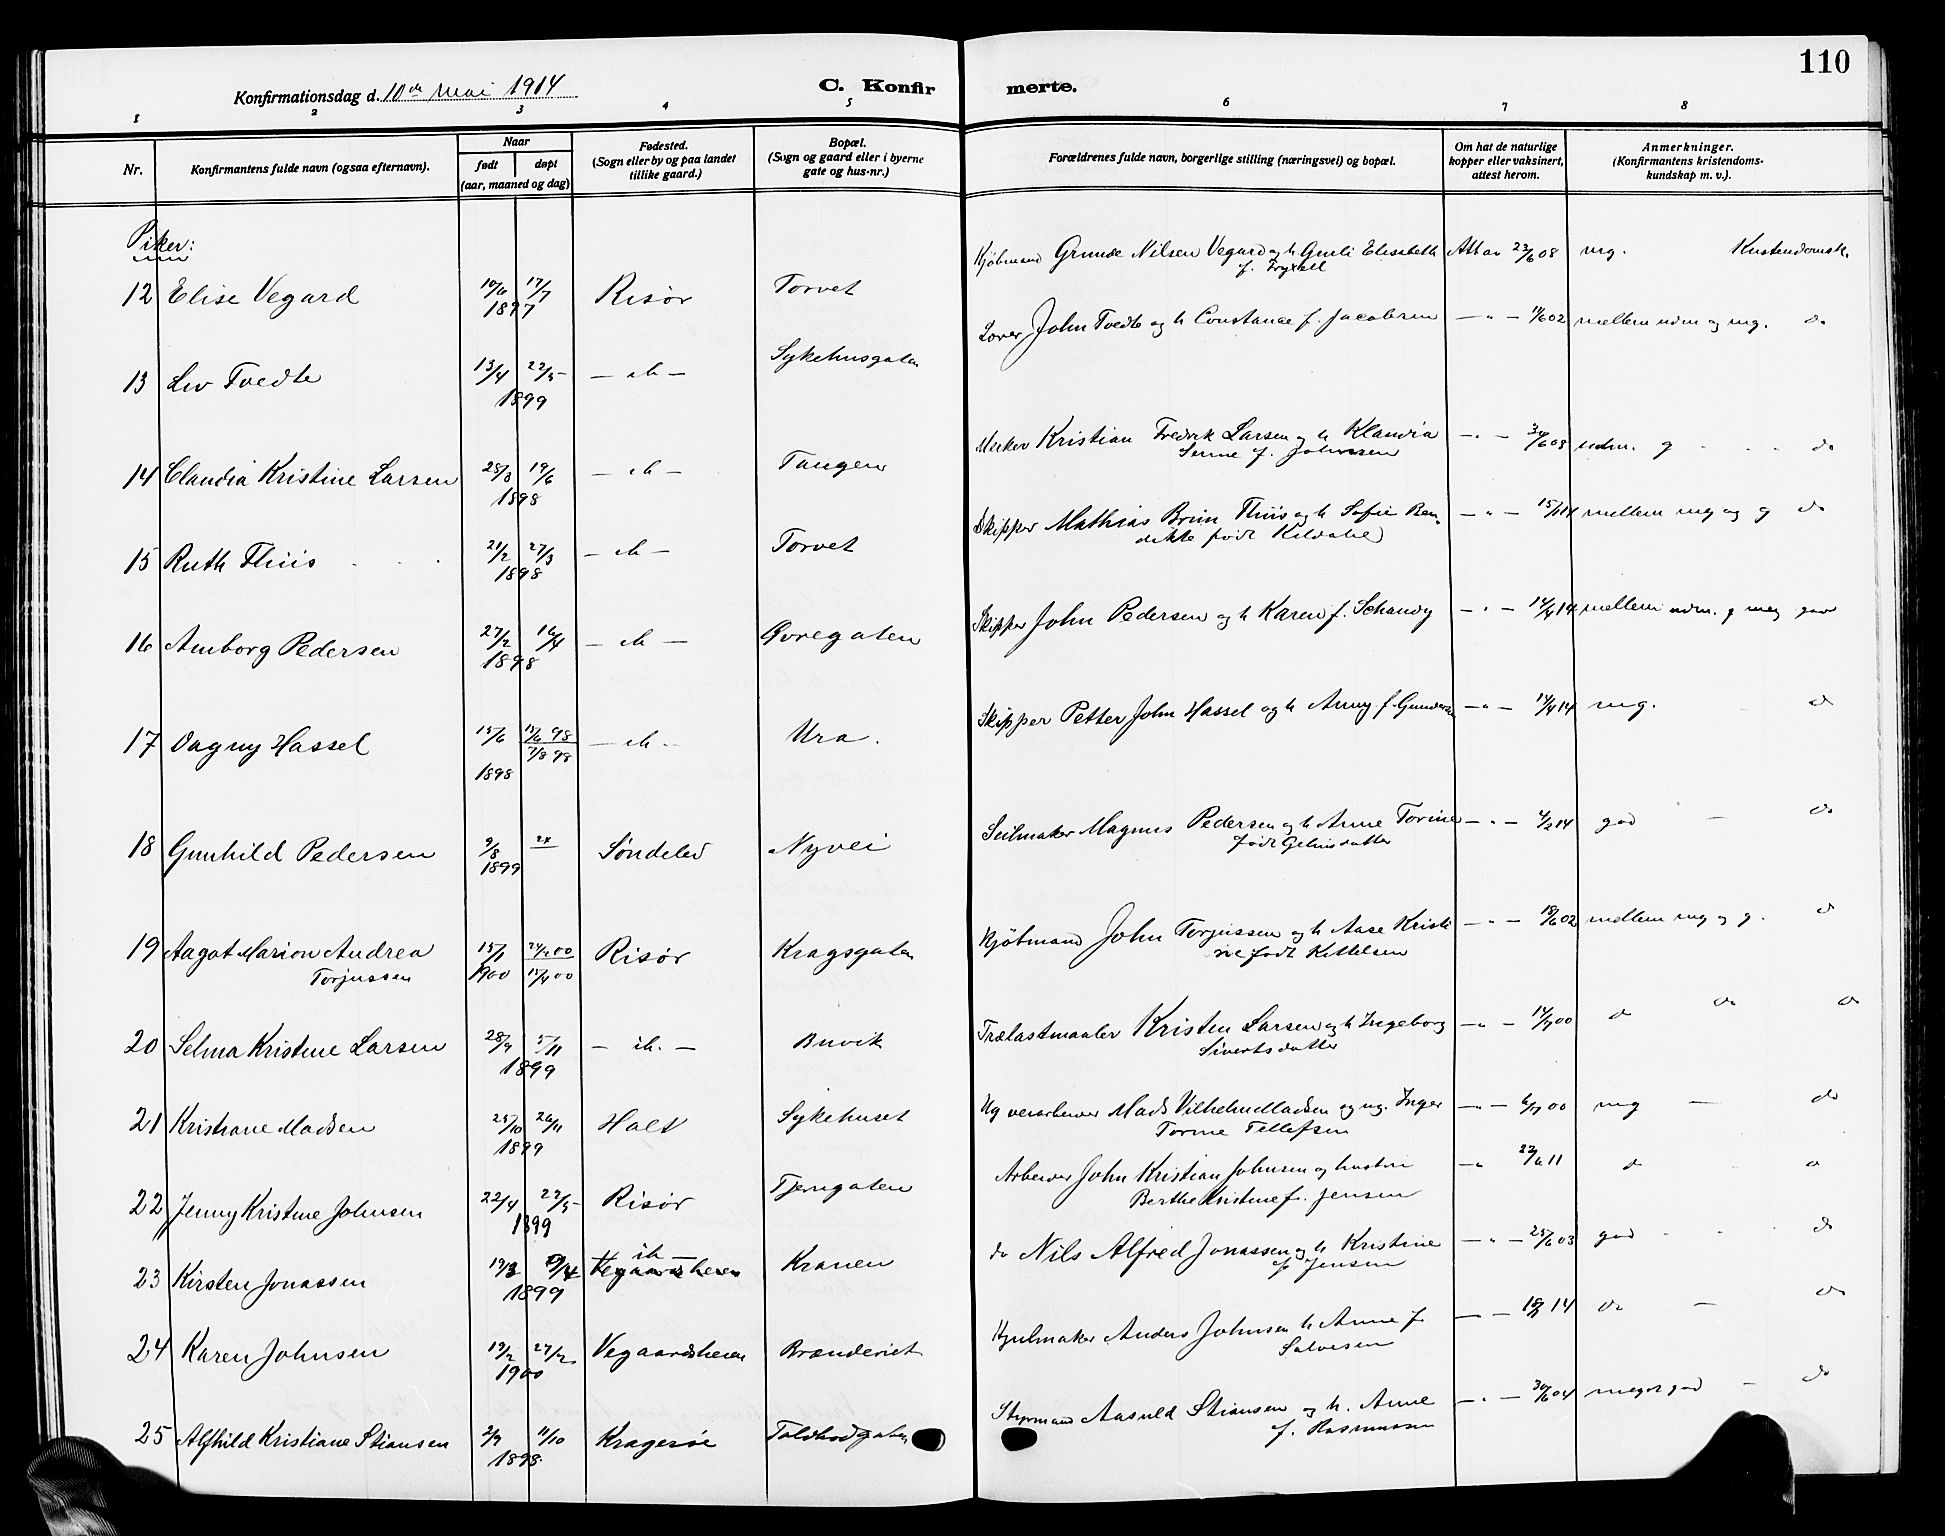 110
Konfirmationsdag d. 10de mai 1914
C. Konfir merte.
1 2 3 4 5 6 7 8
Nr.
Konfirmantens fulde navn (ogsaa efternavn).
Naar
født døpt
(aar, maaned og dag)
Fødested.
(Sogn eller by og paa landet
tillike gaard.)
Bopæl.
(Sogn og gaard eller i byerne
gate og hus-nr.)
Forældrenes fulde navn, borgerlige stilling (næringsvei) og bopæl.
Om hat de naturlige
kopper eller vaksinert,
attest herom.
Anmerkninger.
(Konfirmantens kristendoms-
kundskap m. v.).
Piker:
Kjøbmand Grunde Nilsen Vegard og h Gurli Elisabeth 23/6 08 mg. Kristendomsk.
12 Elise Vegard 1897 Risør Torvet
John Tvedte og h Constance f. Jacobsen 02 mellem udm og mg. do
13 Liv Tvedte 13/4 22/5 1899 — do — Sykehusgaten
Kristian Fredrik Larsen og h Klaudia 08 udm. g do
f. Johnsen
14 Claudia Kristine Larsen 28/3 19/6 1898 — do — Tangen
Skipper Mathias Brun Thiis og h Sofie Ben- 14 mellem mg og g do
dikte født Kildahl
15 Ruth Thiis 21/2 27/3 1898 — do — Torvet
Skipper John Pedersen og h Karen f. Schandy 14/4 14 mellem udm. g meg god
16 Amborg Pedersen 27/2 1898 — do — Øvregaten
Skipper Petter John Hassel og h Anny f. Gundersen 14/4 14 mg. do
17 Dagny Hassel 15/6 98 7/8 98 1898 — do — Ura.
Seilmaker Magnus Pedersen og h Anne Torine 14 god — do
født
18 Gunhild Pedersen 9/8 1899 Søndeled Nyvei
Kjøbmand John Torjussen og h Aase Kristi 18/6 02 mellem mg og g. do
ne født Kittelsen
19 Aagot Marion Andrea 15/1 00 Risør Kragsgaten
Torjussen 1900 00
Trælastmaaler Kristen Larsen og h Ingeborg 00 do do do
Sivertsdatter
20 Selma Kristine Larsen 28/9 5/11 1899 — do — Buvik
Mads Vilhelm Madsen og ug. Inger 00 mg — do
Torine Tellefsen
21 Kristiane Madsen 25/10 26/11 1899 Holt Sykehuset
Arbeider John Kristian Johnsen og hustru 11 do do
Berthe Kristine f. Jensen
22 Jenny Kristine Johnsen 22/4 27/5 1899 Risør Tjerngaten
do Nils Alfred Jonassen og h Kristine 25/6 03 god do
f Jensen
do
23 Kirsten Jonassen 1899 Vegaardsheien Kranen
Hjulmaker Anders Johnsen h Anne f 14 do — do
Salvesen
24 Karen Johnsen 19/2 27/2 1900 Vegaardsheien Brænderiet
Styrmand Aasuld Stiansen og h. Anne 30/6 04 meget god — do
f. Rasmussen
25 Alfhild Kristiane Stiansen 2/9 11/10 1898 Kragerøe Toldbodgaten